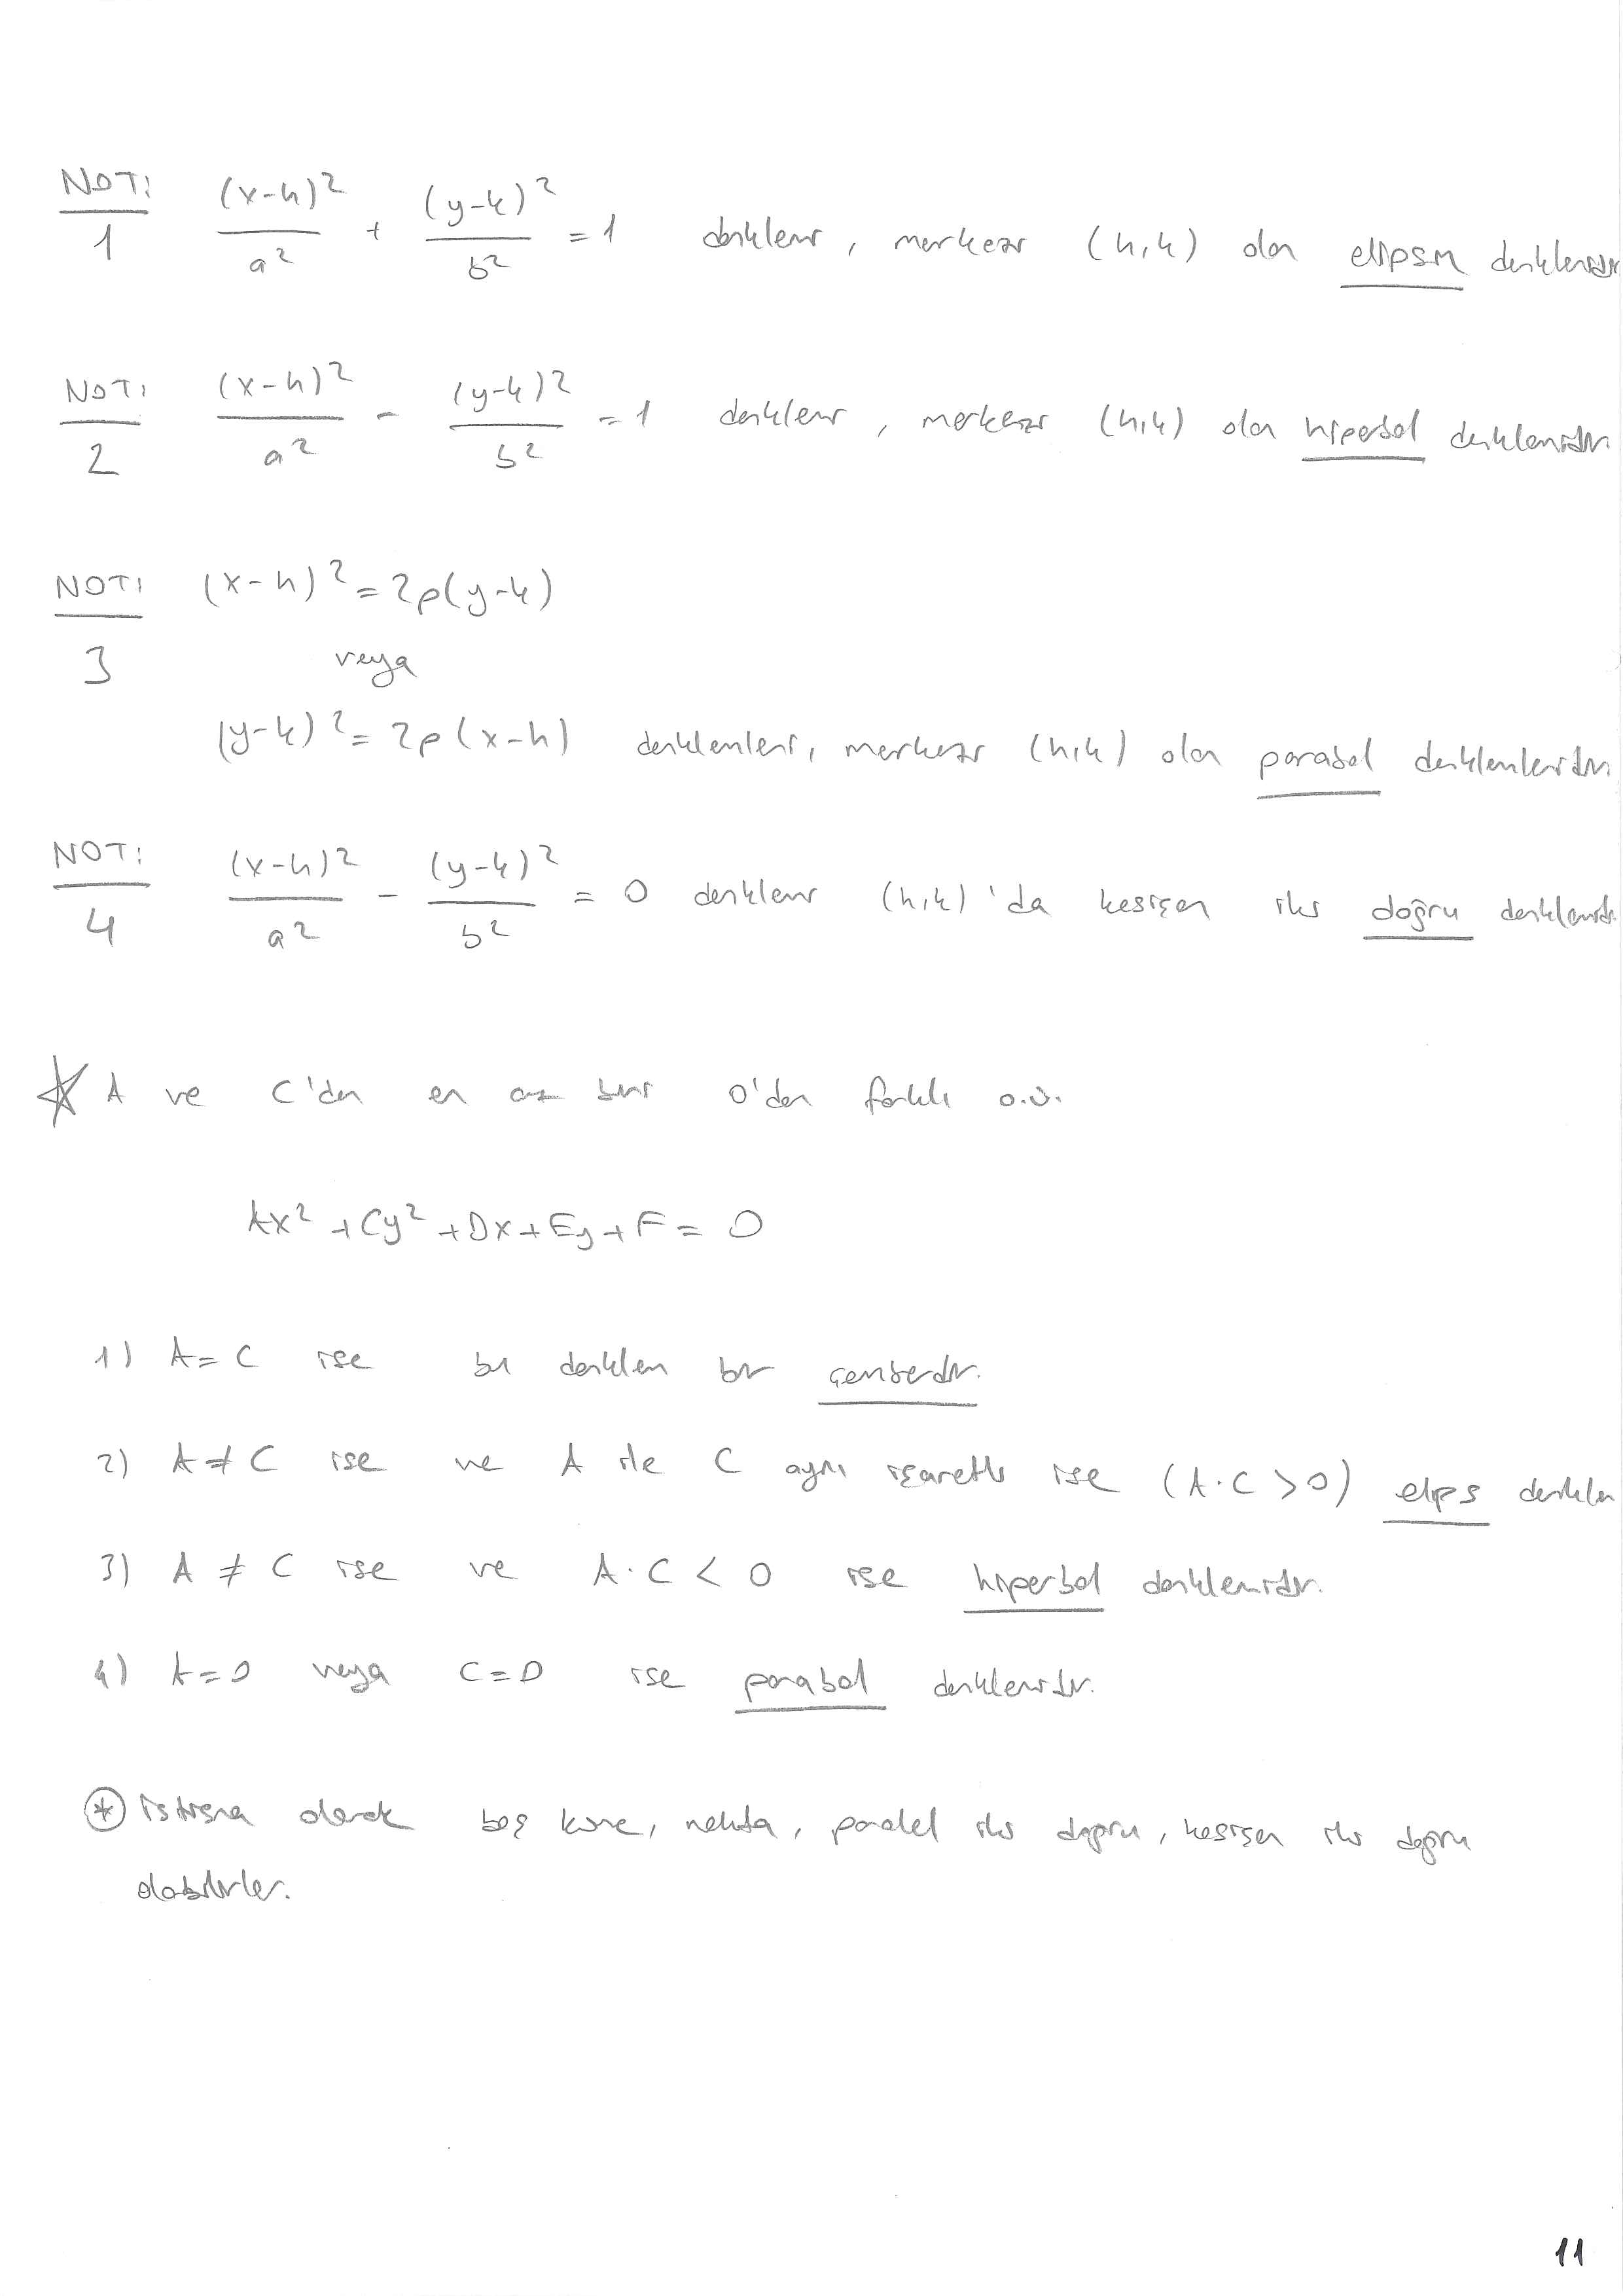 NOT: 1 (x-h)²/a² + (y-k)²/b² = 1 denklemi, merkezi (h,k) olan elipsin denklemidir
NOT: 2 (x-h)²/a² - (y-k)²/b² = 1 denklemi, merkezi (h,k) olan hiperbol denklemidir.
NOT: 3 (x-h)² = 2p(y-k)
veya
(y-k)² = 2p(x-h) denklemleri, merkezi (h,k) olan parabol denklemleridir
NOT: 4 (x-h)²/a² - (y-k)²/b² = 0 denklemi (h,k)'da kesişen iki doğru denklemidir.
☆ A ve C'den en az biri 0'dan farklı o.ü.
Ax² + Cy² + Dx + Ey + F = 0
1) A = C ise bu denklem bir çemberdir.
2) A ≠ C ise ve A ile C aynı işaretli ise (A·C > 0) elips denklem
3) A ≠ C ise ve A·C < 0 ise hiperbol denklemidir.
4) A = 0 veya C = 0 ise parabol denklemidir.
⊛ istisna olarak boş küme, nokta, paralel iki doğru, kesişen iki doğru
olabilirler.
11